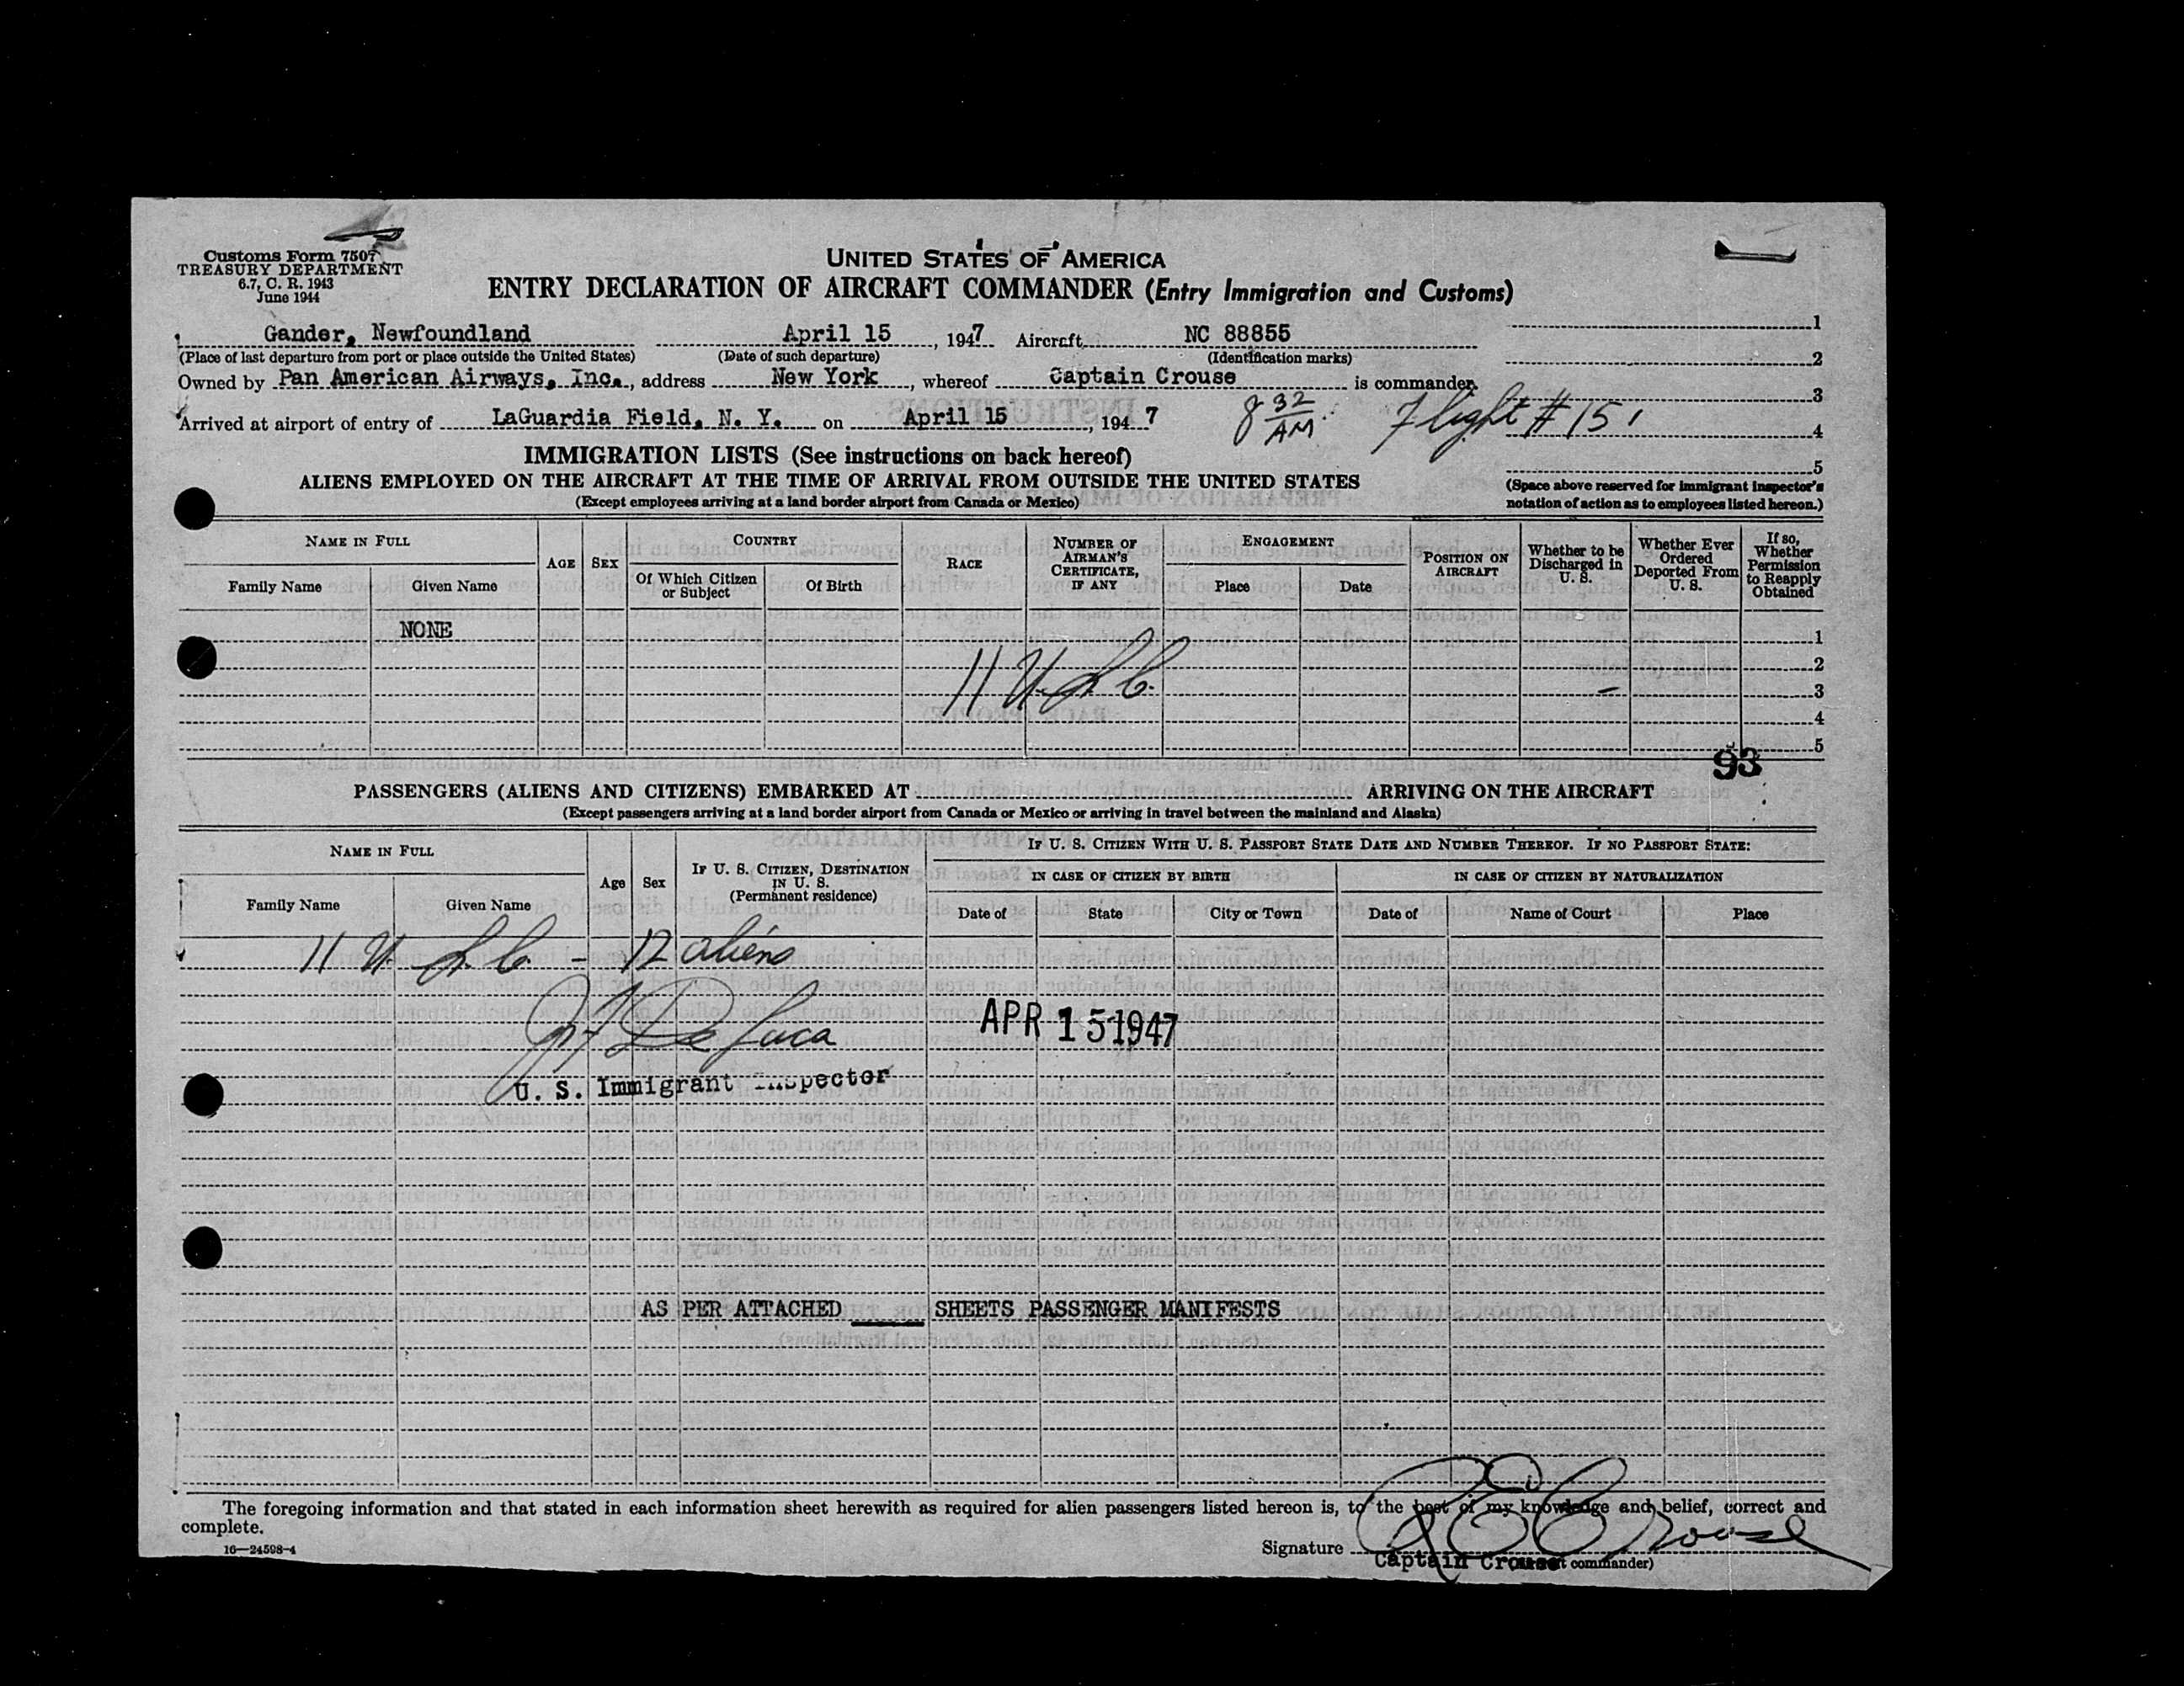 Customs Form 7507
TREASURY DEPARTMENT
6.7, C. R. 1943
June 1944
UNITED STATES OF AMERICA
ENTRY DECLARATION OF AIRCRAFT COMMANDER (Entry Immigration and Customs)
Gander, Newfoundland April 15, 1947 Aircraft NC 88855
(Place of last departure from port or place outside the United States) (Date of such departure) (Identification marks)
Owned by Pan American Airways, Inc., address New York, whereof Captain Crouse is commander.
Arrived at airport of entry of LaGuardia Field, N. Y. on April 15, 1947 8 32 AM Flight # 151
1
2
3
4
5
(Space above reserved for immigrant inspector's
notation of action as to employees listed hereon.)
IMMIGRATION LISTS (See instructions on back hereof)
ALIENS EMPLOYED ON THE AIRCRAFT AT THE TIME OF ARRIVAL FROM OUTSIDE THE UNITED STATES
(Except employees arriving at a land border airport from Canada or Mexico)
NAME IN FULL
Family Name
Given Name
AGE
SEX
COUNTRY
Of Which Citizen or Subject
Of Birth
RACE
NUMBER OF AIRMAN'S CERTIFICATE, IF ANY
ENGAGEMENT
Place
Date
POSITION ON AIRCRAFT
Whether to be Discharged in U. S.
Whether Ever Ordered Deported From U. S.
If so, Whether Permission to Reapply Obtained
NONE 1
2
11 U.S.C. – 3
4
5
93
PASSENGERS (ALIENS AND CITIZENS) EMBARKED AT ARRIVING ON THE AIRCRAFT
(Except passengers arriving at a land border airport from Canada or Mexico or arriving in travel between the mainland and Alaska)
NAME IN FULL
Family Name
Given Name
Age
Sex
IF U. S. CITIZEN, DESTINATION IN U. S.
(Permanent residence)
IF U. S. CITIZEN WITH U. S. PASSPORT STATE DATE AND NUMBER THEREOF. IF NO PASSPORT STATE:
IN CASE OF CITIZEN BY BIRTH
IN CASE OF CITIZEN BY NATURALIZATION
Date of
State
City or Town
Date of
Name of Court
Place
11 U.S.C. – 12 aliens
De Luca
APR 15 1947
U. S. Immigrant Inspector
AS PER ATTACHED ____ SHEETS PASSENGER MANIFESTS
The foregoing information and that stated in each information sheet herewith as required for alien passengers listed hereon is, to the best of my knowledge and belief, correct and
complete.
16—24598-4
Signature Crouse
Captain Crouse commander)